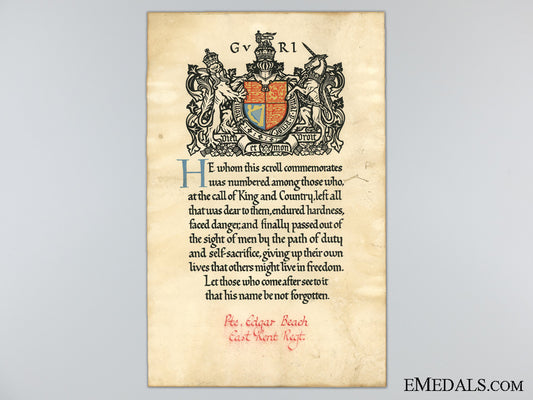 G V R I
Dieu et Mon Droit
HE whom this scroll commemorates
was numbered among those who,
at the call of King and Country, left all
that was dear to them, endured hardness,
faced danger, and finally passed out of
the sight of men by the path of duty
and self-sacrifice, giving up their own
lives that others might live in freedom.
Let those who come after see to it
that his name be not forgotten.
Pte. Edgar Beach
East Kent Regt.
EMEDALS.COM